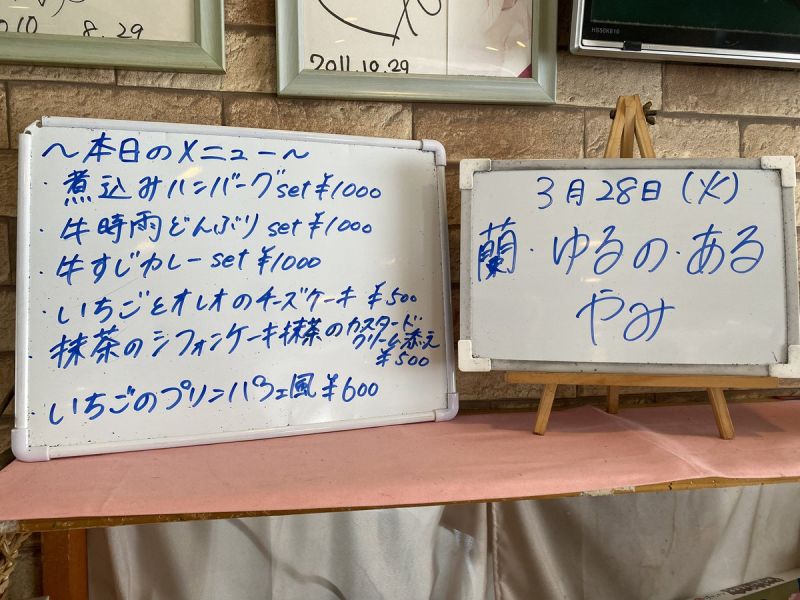 8.29
2011.10.29
HS50K610
〜本日のメニュー〜
・煮込みハンバーグset ¥1000
・牛時雨どんぶりset ¥1000
・牛すじカレーset ¥1000
・いちごとオレオのチーズケーキ ¥500
・抹茶のシフォンケーキ抹茶のカスタード
クリーム添え
¥500
・いちごのプリンパフェ風 ¥600
3月28日(火)
蘭・ゆるの・ある
やみ